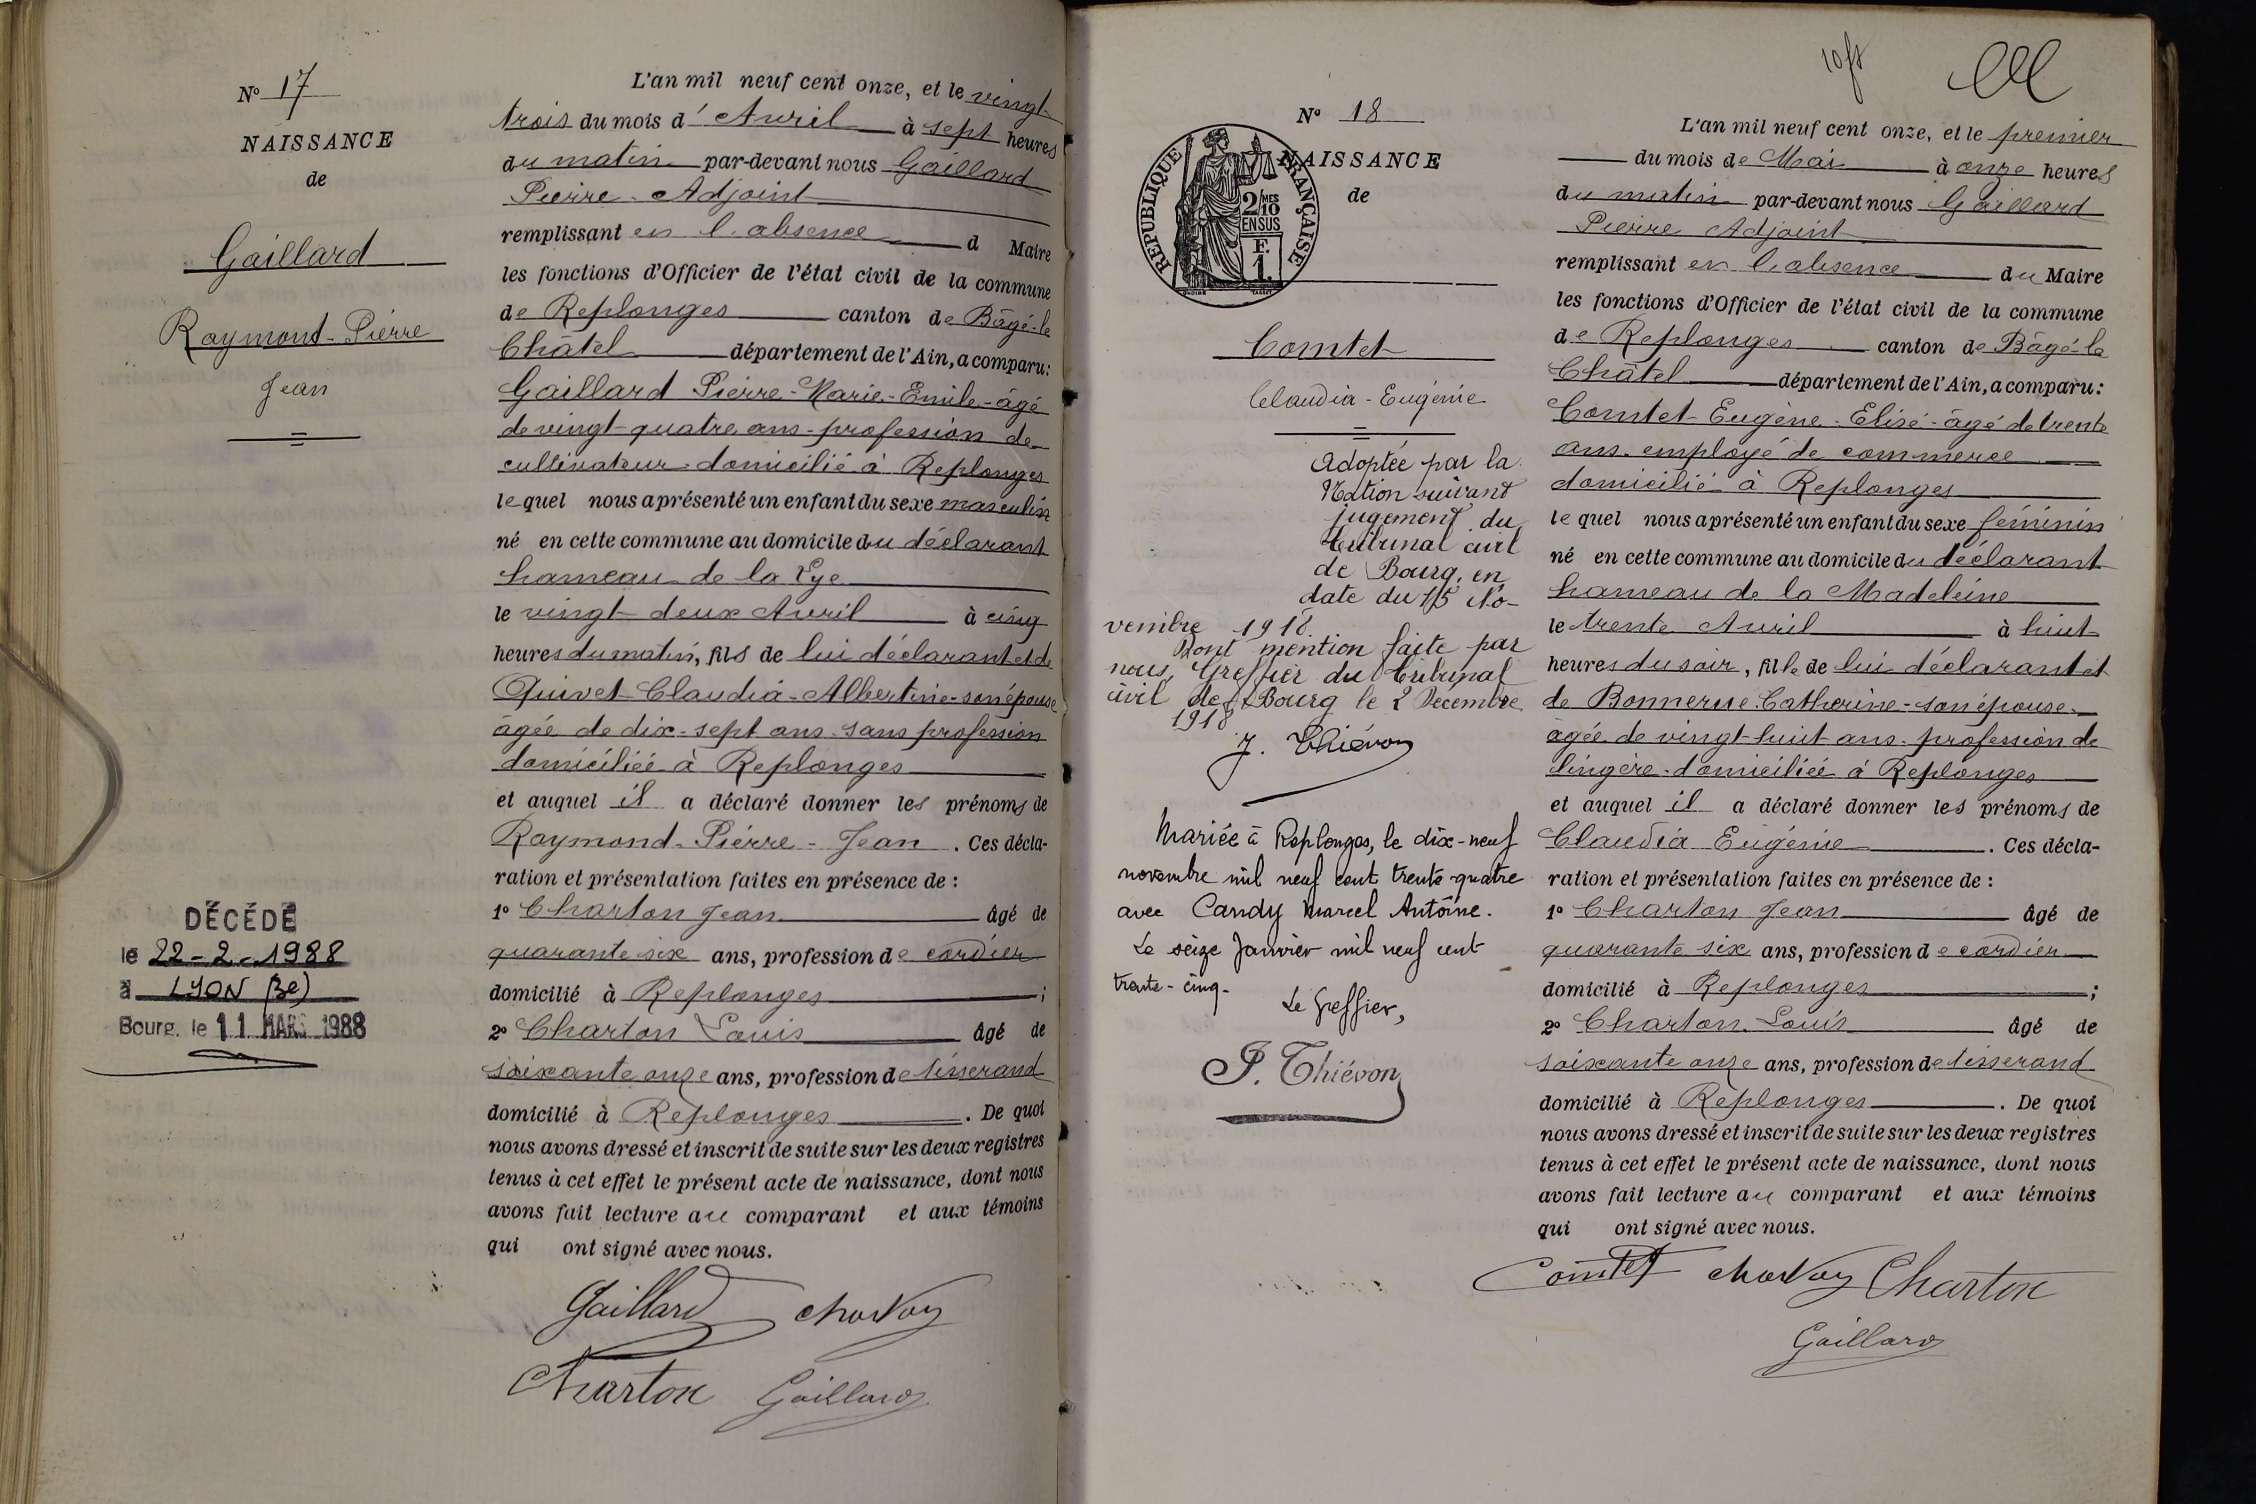 N° 17
NAISSANCE
de
Gaillard
Raymond-Pierre
Jean
DÉCÉDÉ
le 22-2-1988
à LYON (3e)
Bourg, le 11 MARS 1988
L'an mil neuf cent onze, et le vingt-
trois du mois d'Avril à sept heures
du matin par-devant nous Gaillard
Pierre-Adjoint
remplissant en l'absence d Maire
les fonctions d'Officier de l'état civil de la commune
de Replonges canton de Bâgé-le
Châtel département de l'Ain, a comparu:
Gaillard Pierre-Marie-Emile-âgé
de vingt-quatre ans-profession de
cultivateur-domicilié à Replonges
lequel nous a présenté un enfant du sexe masculin
né en cette commune au domicile du déclarant
hameau de la Lye
le vingt-deux Avril à cinq
heures du matin, fils de lui déclarant et de
Quivet Claudia-Albertine-son épouse
âgée de dix-sept ans-sans profession
domiciliée à Replonges
et auquel il a déclaré donner les prénoms de
Raymond-Pierre-Jean. Ces décla-
ration et présentation faites en présence de :
1° Charton Jean âgé de
quarante six ans, profession de cordier
domicilié à Replonges ;
2° Charton Louis âgé de
soixante onze ans, profession de tisserand
domicilié à Replonges. De quoi
nous avons dressé et inscrit de suite sur les deux registres
tenus à cet effet le présent acte de naissance, dont nous
avons fait lecture au comparant et aux témoins
qui ont signé avec nous.
Gaillard
Charton Gaillard
10 ft
N° 18
NAISSANCE
de
RÉPUBLIQUE FRANÇAISE
2/10 MES
EN SUS
F.
1.
Comtet
Claudia-Eugénie
Adoptée par la
Nation suivant
jugement du
tribunal civil
de Bourg, en
date du 15 No-
vembre 1918.
Dont mention faite par
nous, Greffier du Tribunal
civil de Bourg le 2 Décembre
1918
J. Thiévon
Mariée à Replonges, le dix-neuf
novembre mil neuf cent trente-quatre
avec Candy Marcel Antoine.
Le seize Janvier mil neuf cent
trente-cinq.
Le Greffier,
P. Thiévon
L'an mil neuf cent onze, et le premier
du mois de Mai à onze heures
du matin par-devant nous Gaillard
Pierre Adjoint
remplissant en l'absence du Maire
les fonctions d'Officier de l'état civil de la commune
de Replonges canton de Bâgé-le
Châtel département de l'Ain, a comparu:
Comtet Eugène-Elisé-âgé de trente
ans-employé de commerce
domicilié à Replonges
lequel nous a présenté un enfant du sexe féminin
né en cette commune au domicile du déclarant
hameau de la Madeleine
le trente Avril à huit
heures du soir, fille de lui déclarant et
de Bonnerue Catherine-son épouse
âgée de vingt-huit ans-profession de
lingère-domiciliée à Replonges
et auquel il a déclaré donner les prénoms de
Claudia Eugénie. Ces décla-
ration et présentation faites en présence de :
1° Charton Jean âgé de
quarante six ans, profession de cordier
domicilié à Replonges ;
2° Charton Louis âgé de
soixante onze ans, profession de tisserand
domicilié à Replonges. De quoi
nous avons dressé et inscrit de suite sur les deux registres
tenus à cet effet le présent acte de naissance, dont nous
avons fait lecture au comparant et aux témoins
qui ont signé avec nous.
Comtet Charton
Gaillard